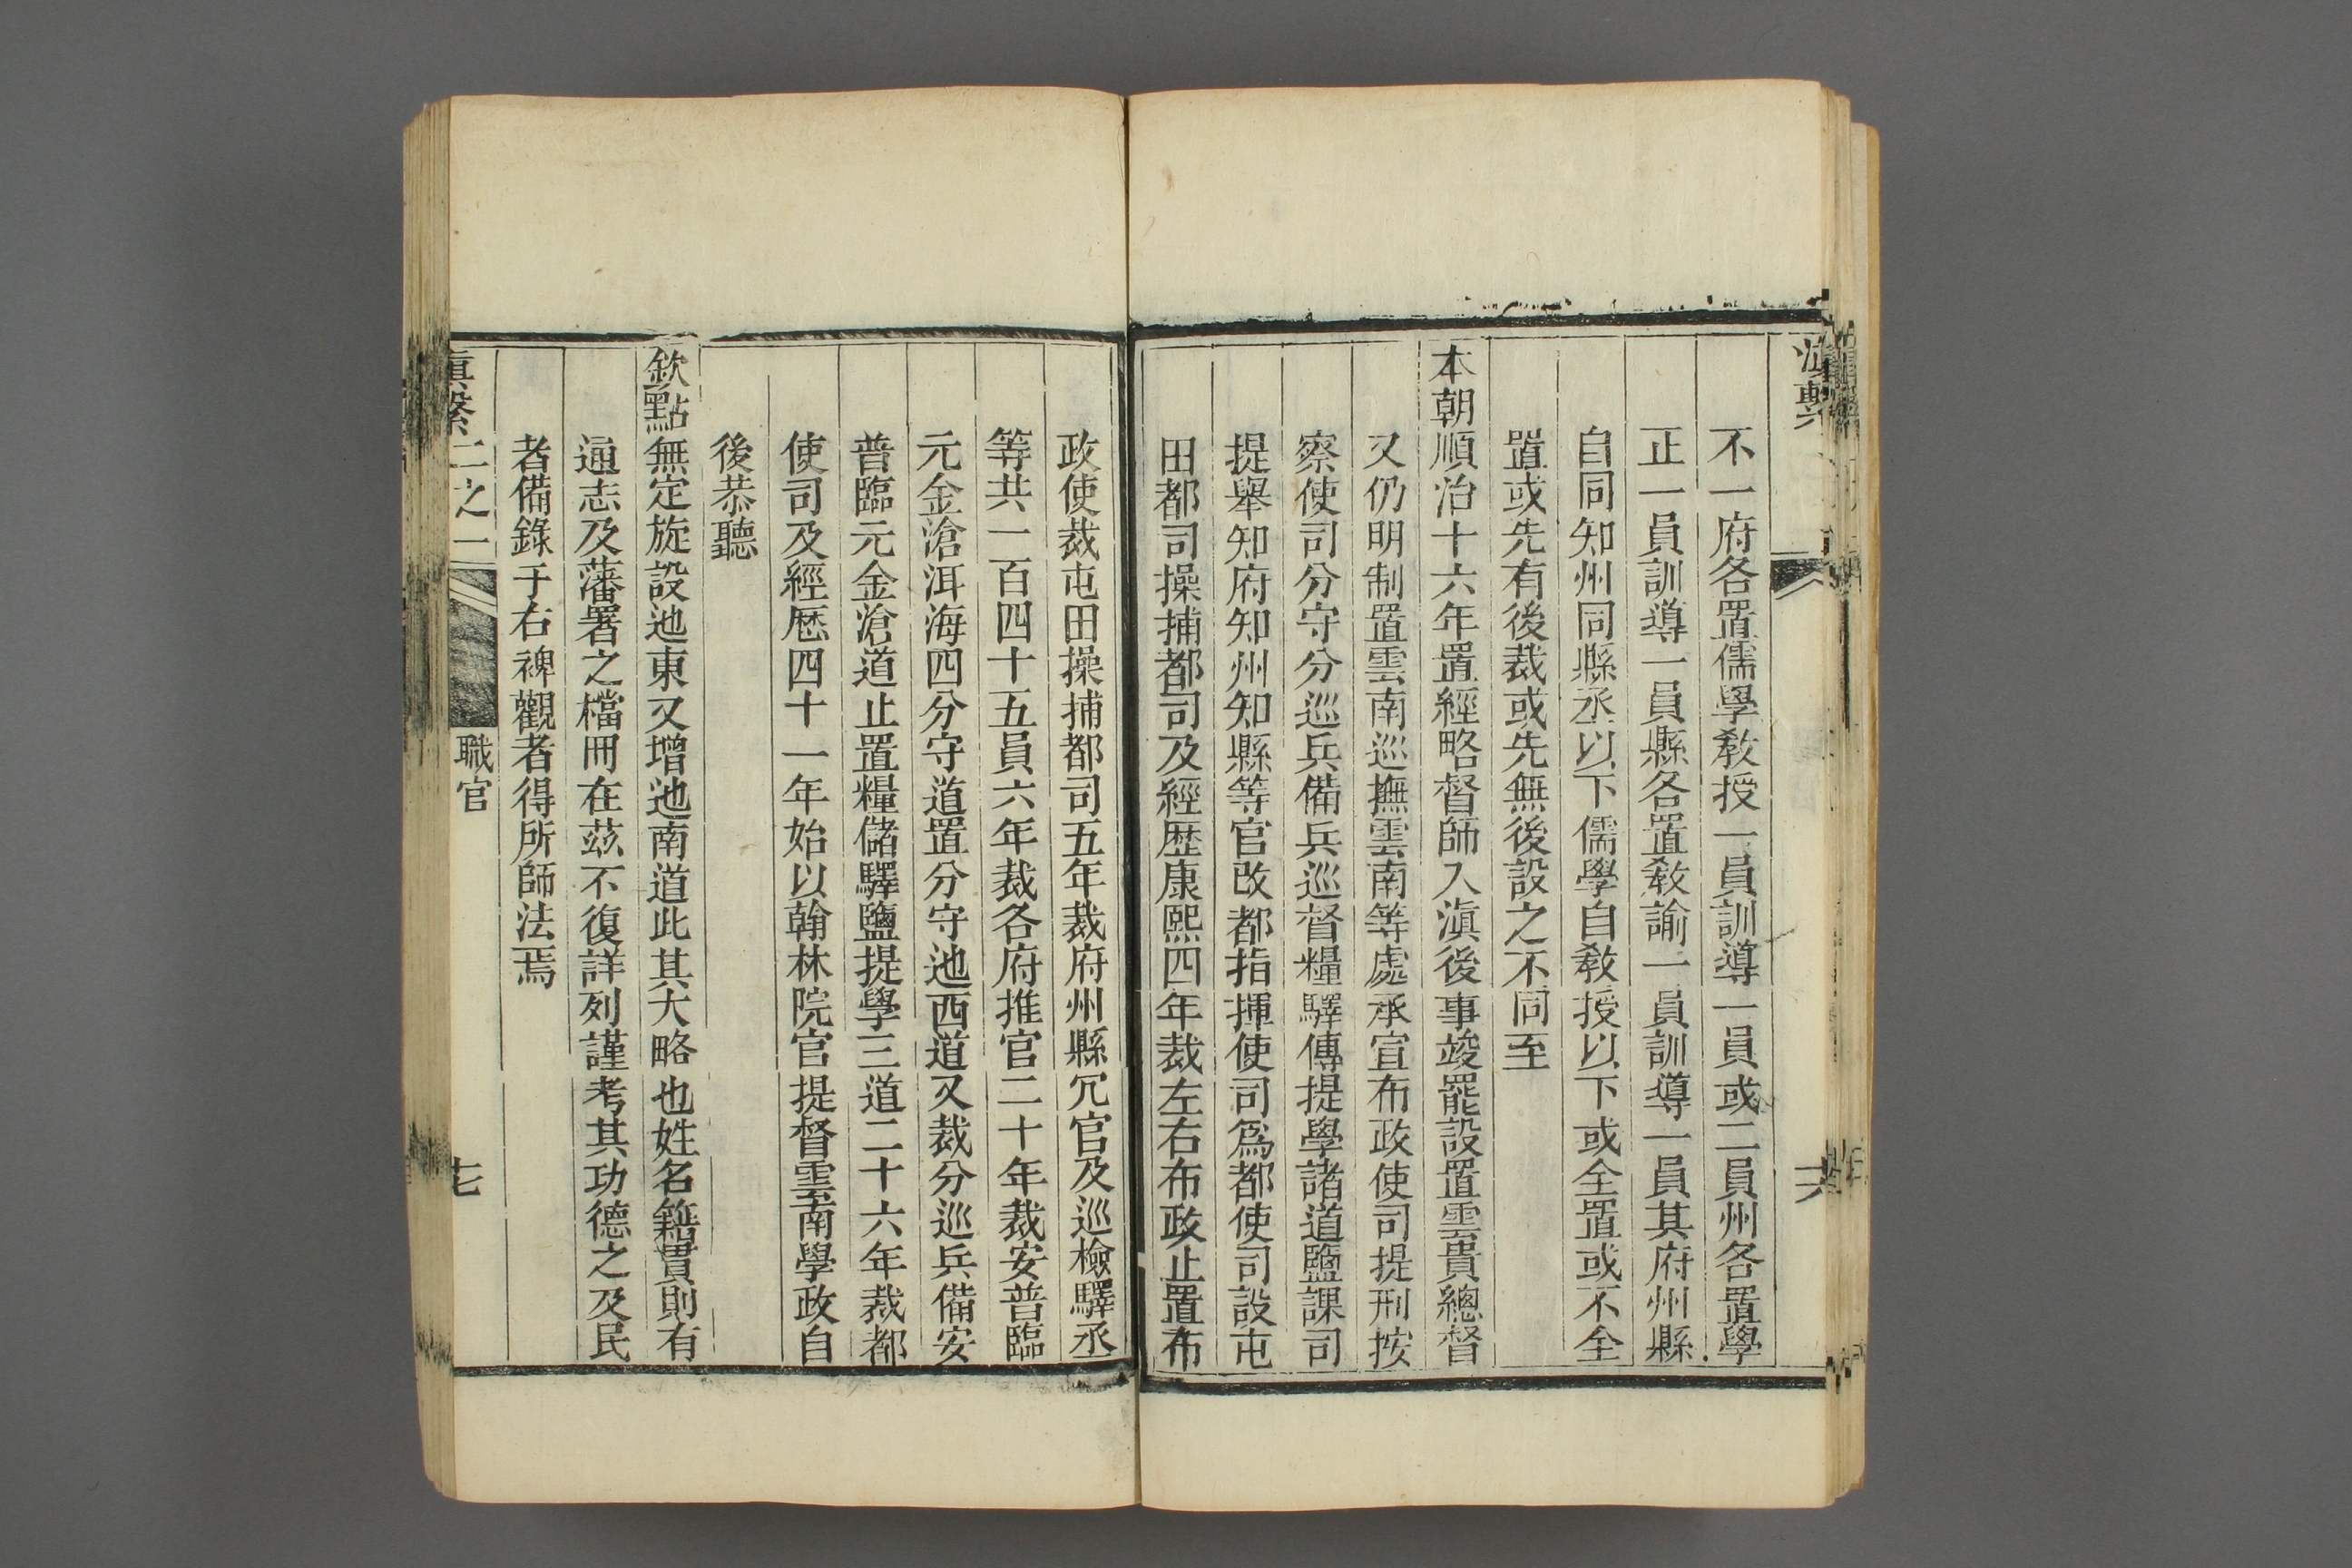 滇繫
六
不一府各置儒學敎授一員訓導一員或二員州各置學
正一員訓導一員縣各置敎諭一員訓導一員其府州縣
自同知州同縣丞以下儒學自敎授以下或全置或不全
置或先有後裁或先無後設之不同至
本朝順治十六年置經略督師入滇後事竣罷設置雲貴總督
又仍明制置雲南巡撫雲南等處承宣布政使司提刑按
察使司分守分巡兵備兵巡督糧驛傳提學諸道鹽課司
提舉知府知州知縣等官改都指揮使司爲都使司設屯
田都司操捕都司及經歷康熙四年裁左右布政止置布
政使裁屯田操捕都司五年裁府州縣冗官及巡檢驛丞
等共一百四十五員六年裁各府推官二十年裁安普臨
元金滄洱海四分守道置分守迤西道又裁分巡兵備安
普臨元金滄道止置糧儲驛鹽提學三道二十六年裁都
使司及經歷四十一年始以翰林院官提督雲南學政自
後恭聽
欽點無定旋設迤東又增迤南道此其大略也姓名籍貫則有
通志及藩署之檔冊在茲不復詳列謹考其功德之及民
者備錄于右裨觀者得所師法焉
滇繫二之一
職官
七